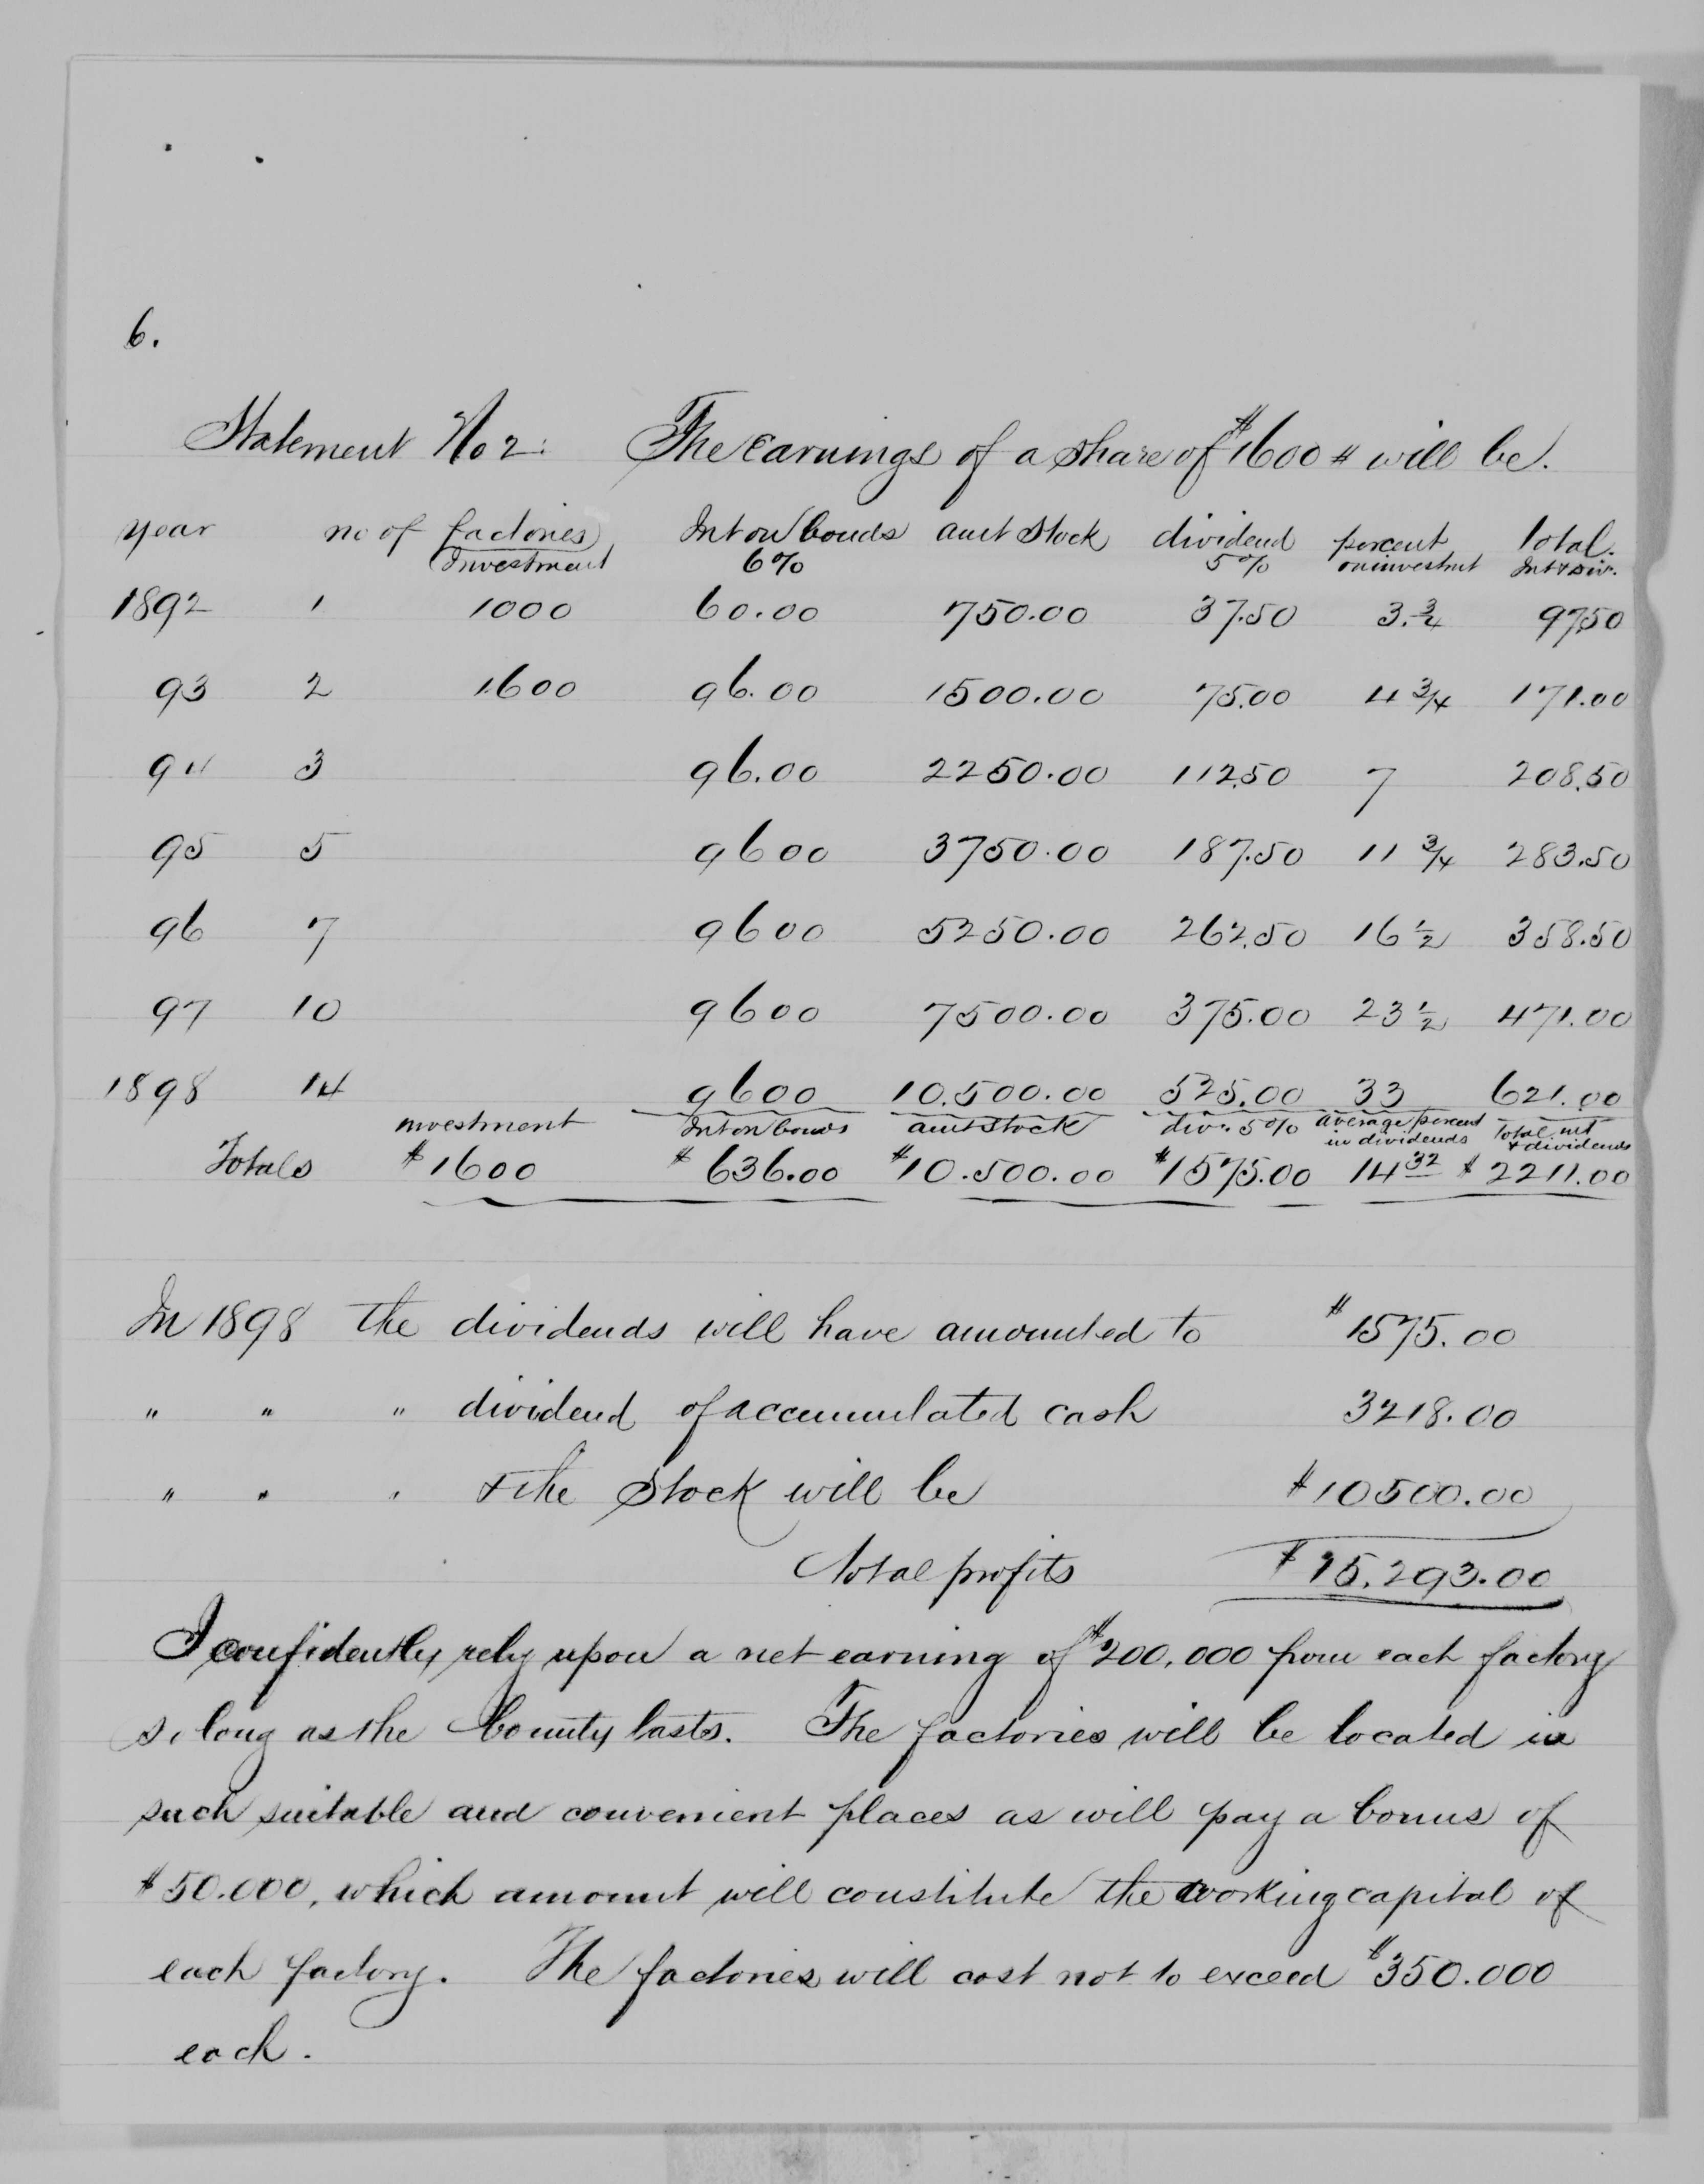 6.
Statement No 2: The earnings of a share of $1600 # will be.
year no of factories Int on bonds amt Stock dividend percent total.
Investment 6% 5% on investmt Int & Div.
1892 1 1000 60.00 750.00 37.50 3.3/4 97.50
93 2 1600 96.00 1500.00 75.00 4 3/4 171.00
94 3 96.00 2250.00 112.50 7 208.50
95 5 9600 3750.00 187.50 11 3/4 283.50
96 7 9600 5250.00 262.50 16 1/2 358.50
97 10 9600 7500.00 375.00 23 1/2 471.00
1898 14 9600 10.500.00 525.00 33 621.00
investment Int on bonds amt stock div. 5% average percent in dividends Total int & dividends
Totals $1600 $636.00 $10.500.00 $1575.00 14 32 $2211.00
In 1898 the dividends will have amounted to $1575.00
" " " dividend of accumulated cash 3218.00
" " " & the Stock will be $10500.00
total profits $15.293.00
I confidently rely upon a net earning of $200,000 from each factory
so long as the bounty lasts. The factories will be located in
such suitable and convenient places as will pay a bonus of
$50.000, which amount will constitute the working capital of
each factory. The factories will cost not to exceed $350.000
each.